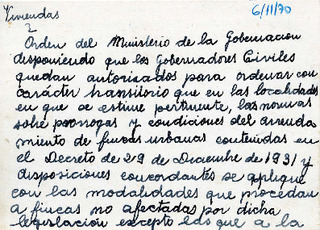 Viviendas
6/11/70
2
Orden del Ministerio de la Gobernación
disponiendo que los Gobernadores Civiles
quedan autorizados para ordenar con
carácter transitorio que en las localidades
en que se estime pertinente, las normas
sobre prorrogas y condiciones del arrenda
miento de fincas urbanas contenidas en
el Decreto de 29 de Diciembre de 1931 y
disposiciones concordantes se aplique
con las modalidades que procedan
a fincas no afectadas por dicha
legislación excepto las que a la